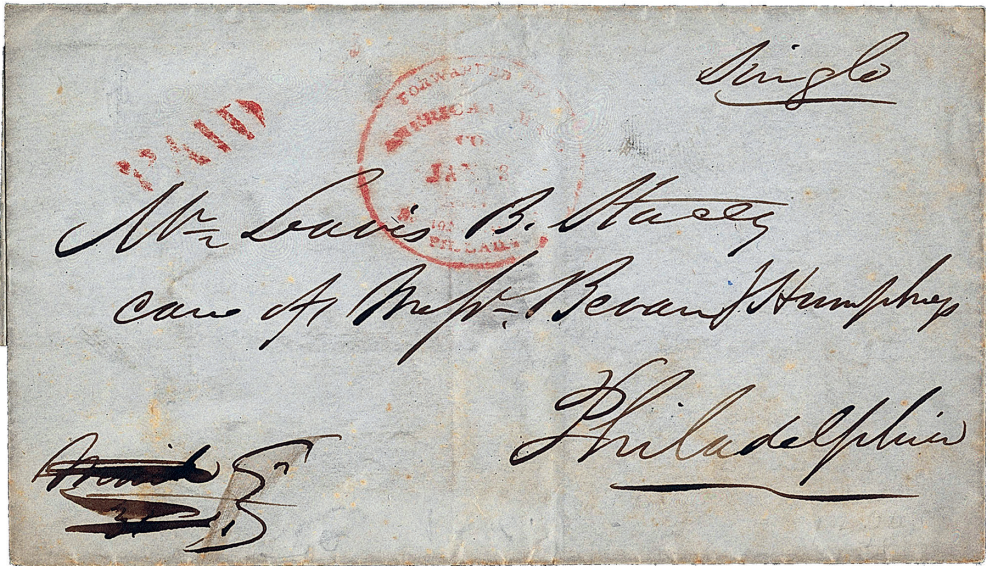 Single
PAID
FORWARDED BY
AMERICAN
CO
JAN
PHILADA
Mr Davis B. Stacey
care of Messrs. Bevan & Humphreys
Philadelphia